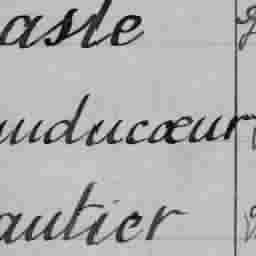 aste
auducœur
autier